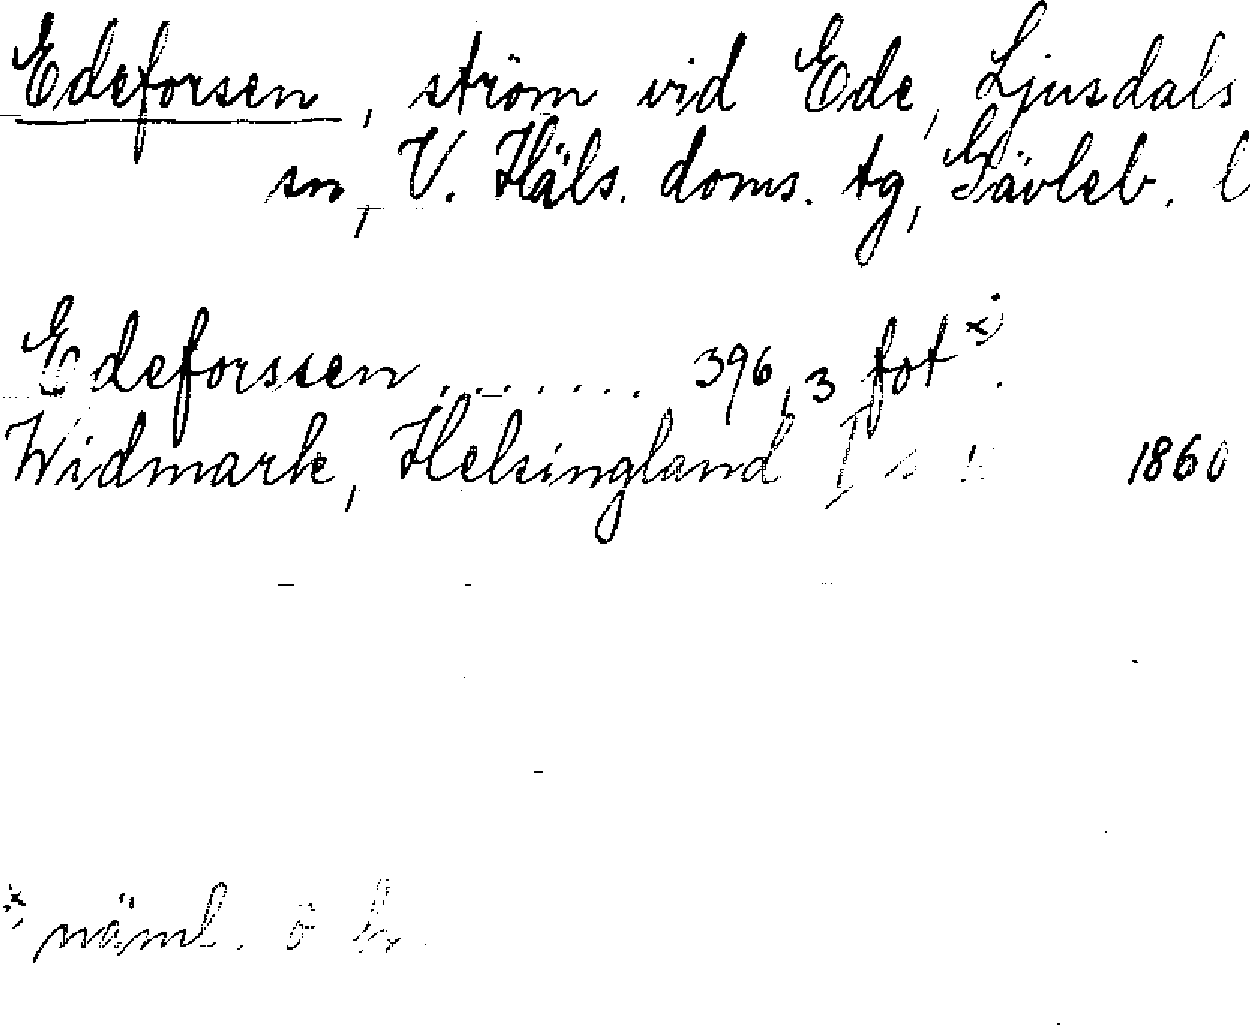 Edeforsen, ström vid Ede, Ljusdals
sn, V. Häls. doms. tg, Gävleb. l
Edeforssen . . . . . . . 396,3 fot x).
Widmark, Helsingland I s 1860
x) näml. ö h